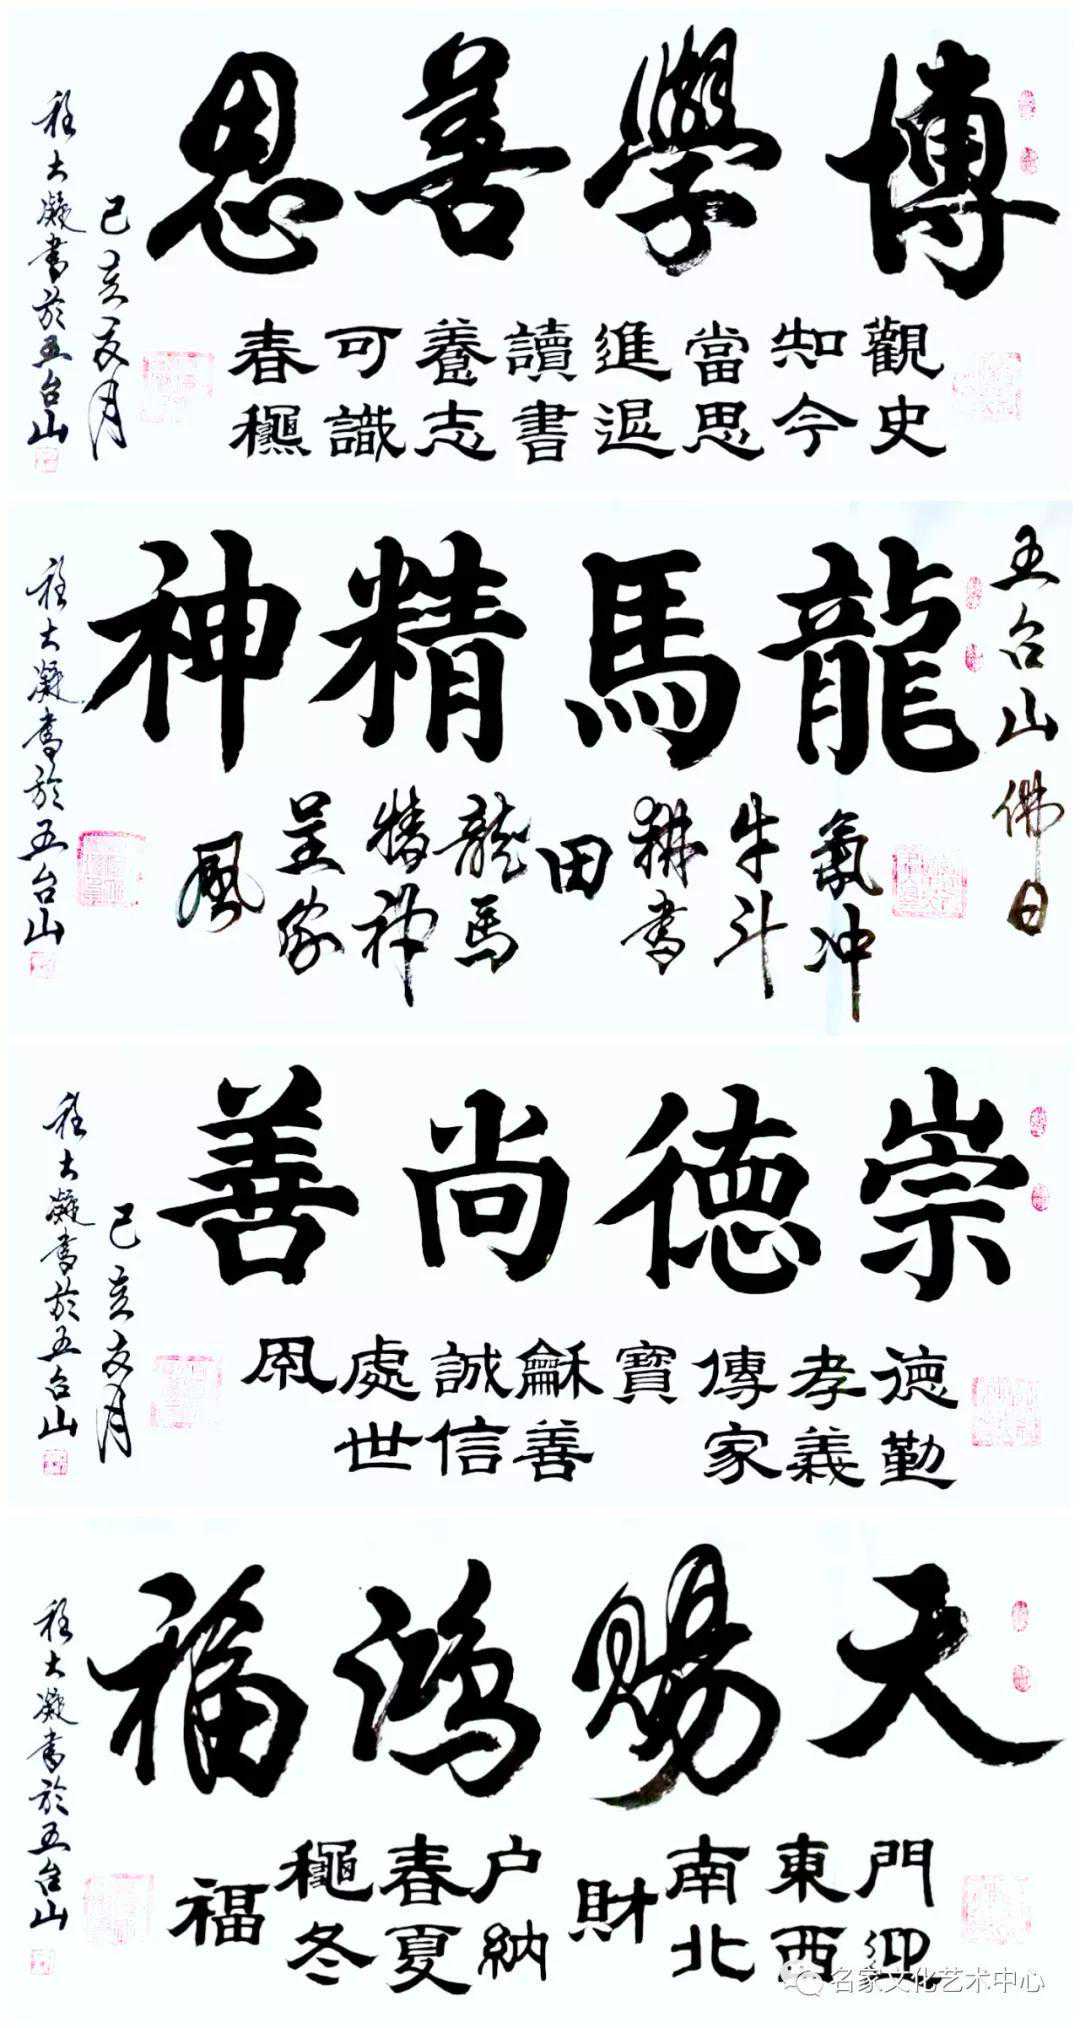 博學善思
觀史
知今
當思
進退
讀書
養志
可識
春穐
己亥友月
程大凝書於五台山
五台山佛日
龍馬精神
氣冲
牛斗
耕書
田
龍馬
精神
呈家
風
程大凝書於五台山
崇德尚善
德勤
孝義
傳家
寶
龢善
誠信
處世
恩
己亥友月
程大凝書於五台山
天賜鴻福
門迎
東西
南北
財
户納
春夏
穐冬
福
程大凝書於五台山
名家文化艺术中心